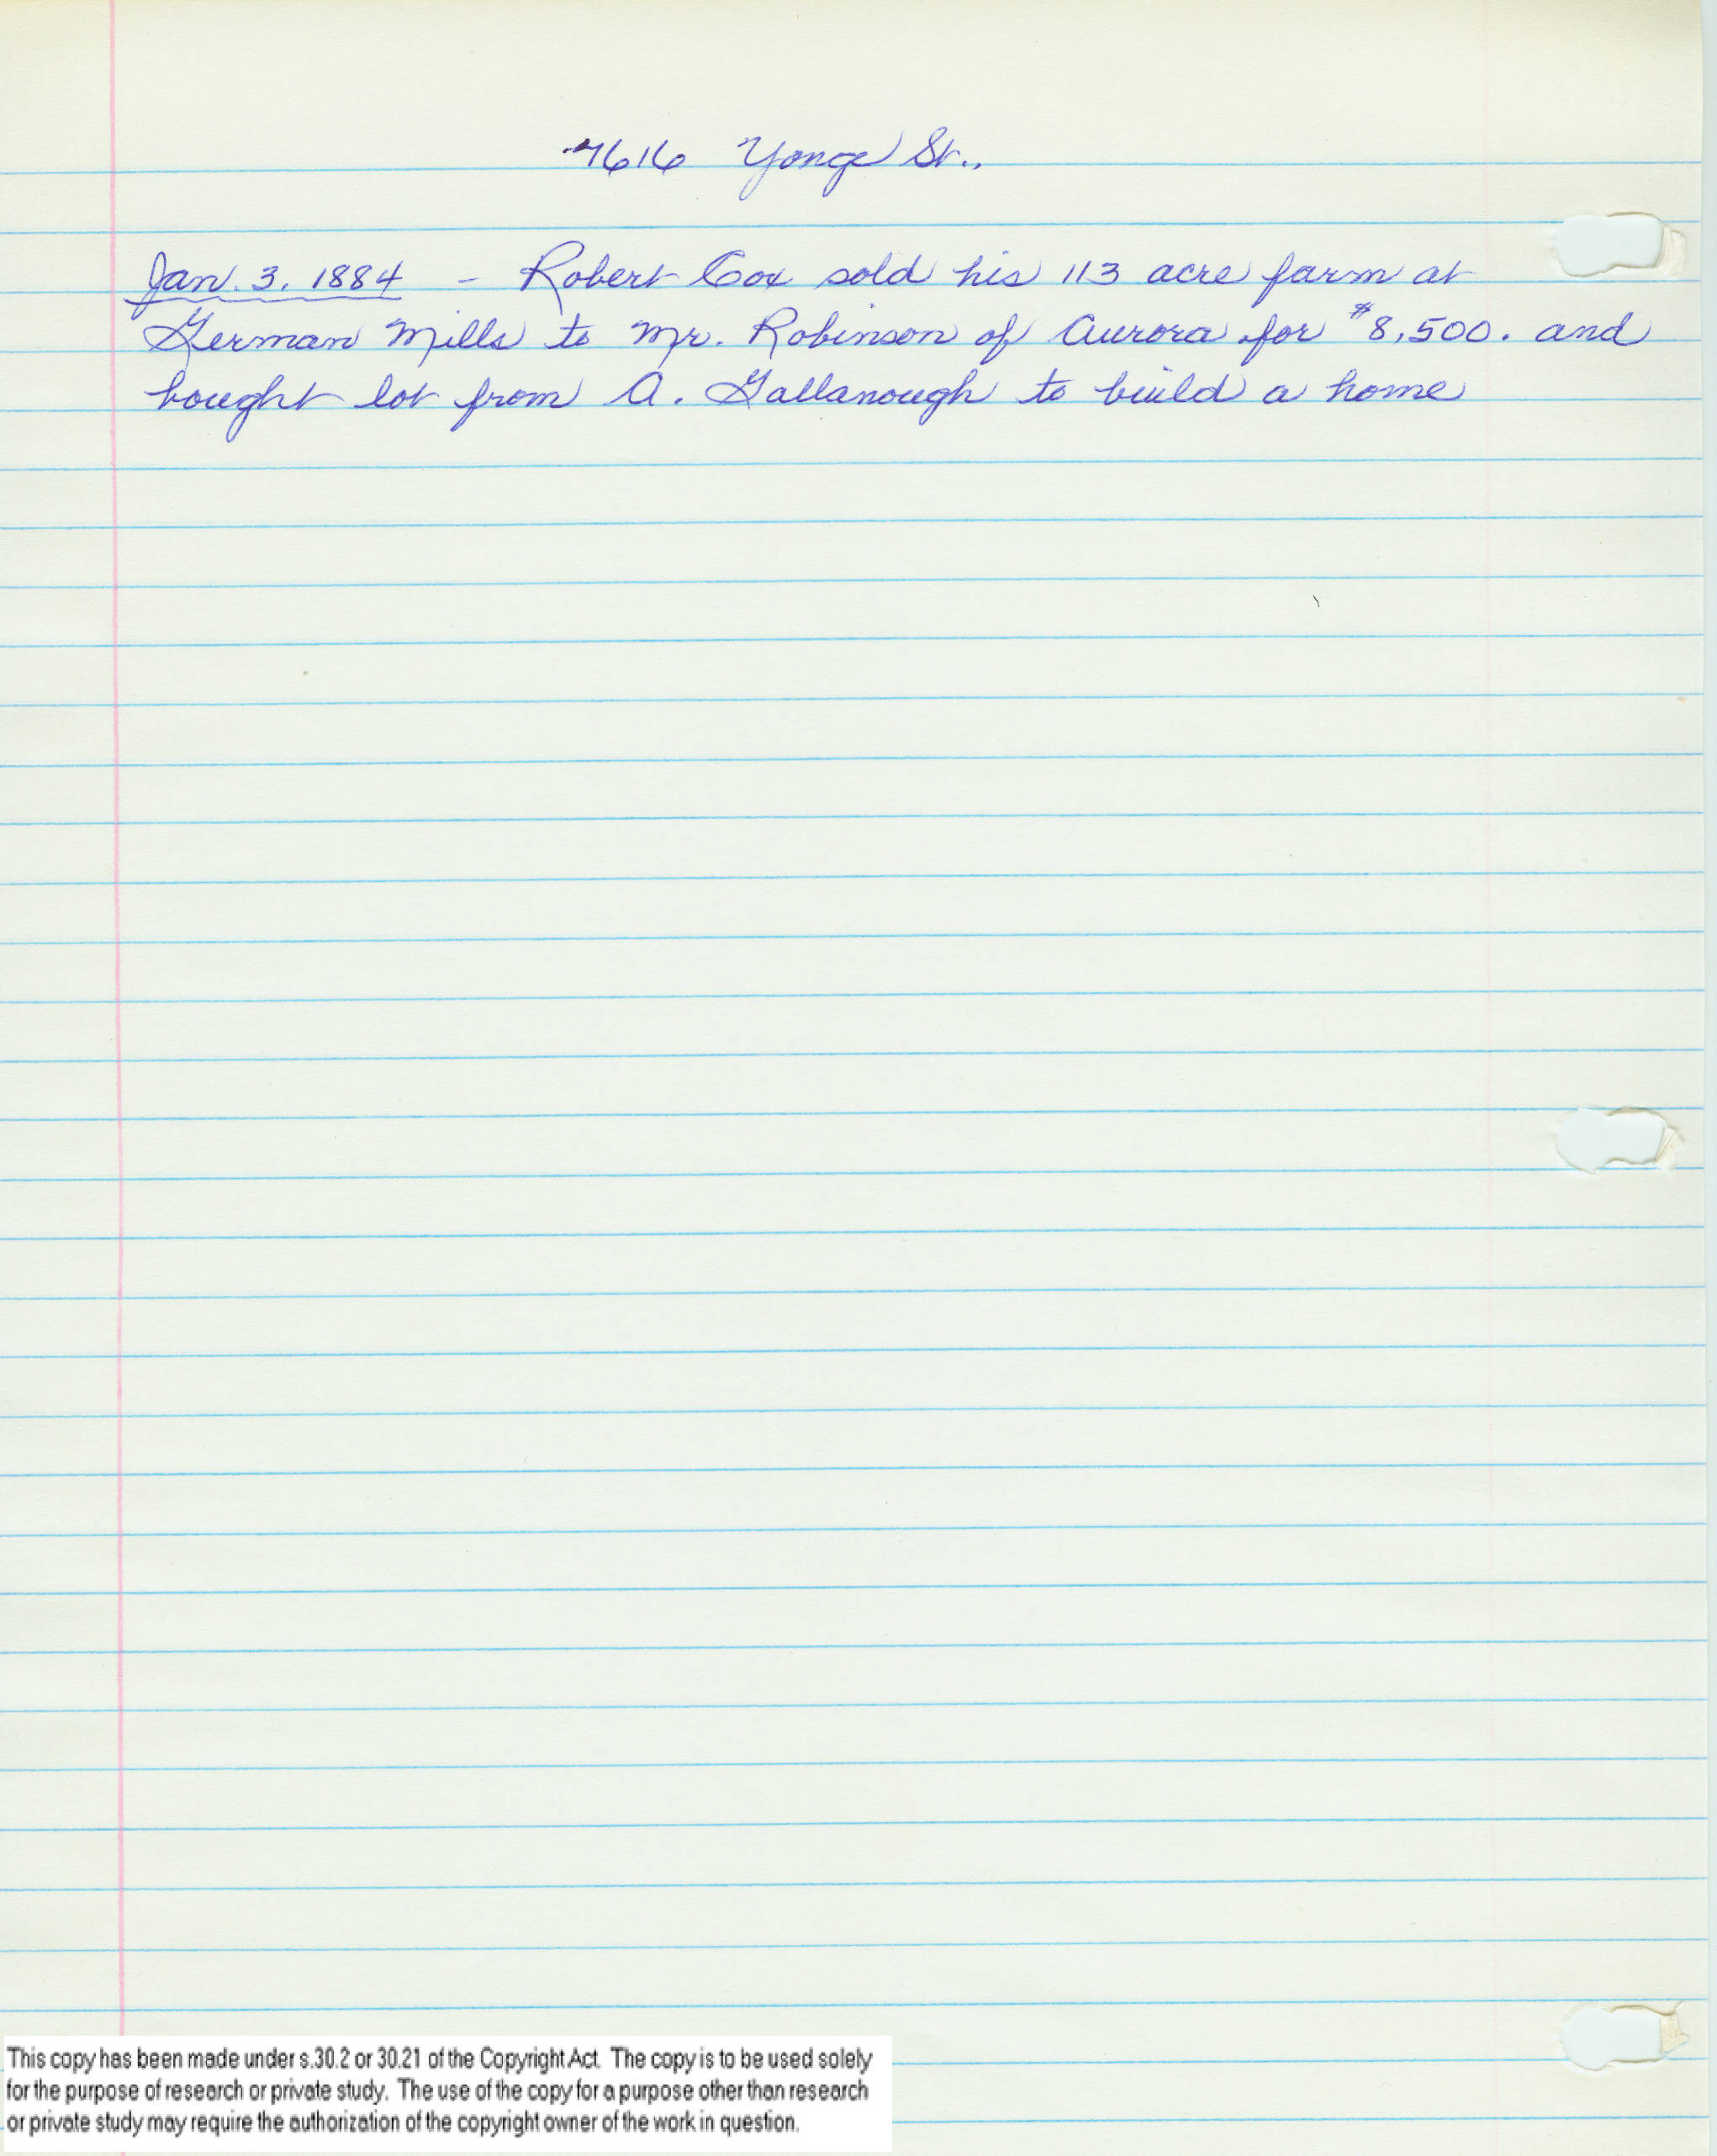 7616 Yonge St.,
Jan. 3. 1884 - Robert Cox sold his 113 acre farm at
German Mills to Mr. Robinson of Aurora for $8,500. and
bought lot from A. Gallanough to build a home
This copy has been made under s.30.2 or 30.21 of the Copyright Act. The copy is to be used solely
for the purpose of research or private study. The use of the copy for a purpose other than research
or private study may require the authorization of the copyright owner of the work in question.